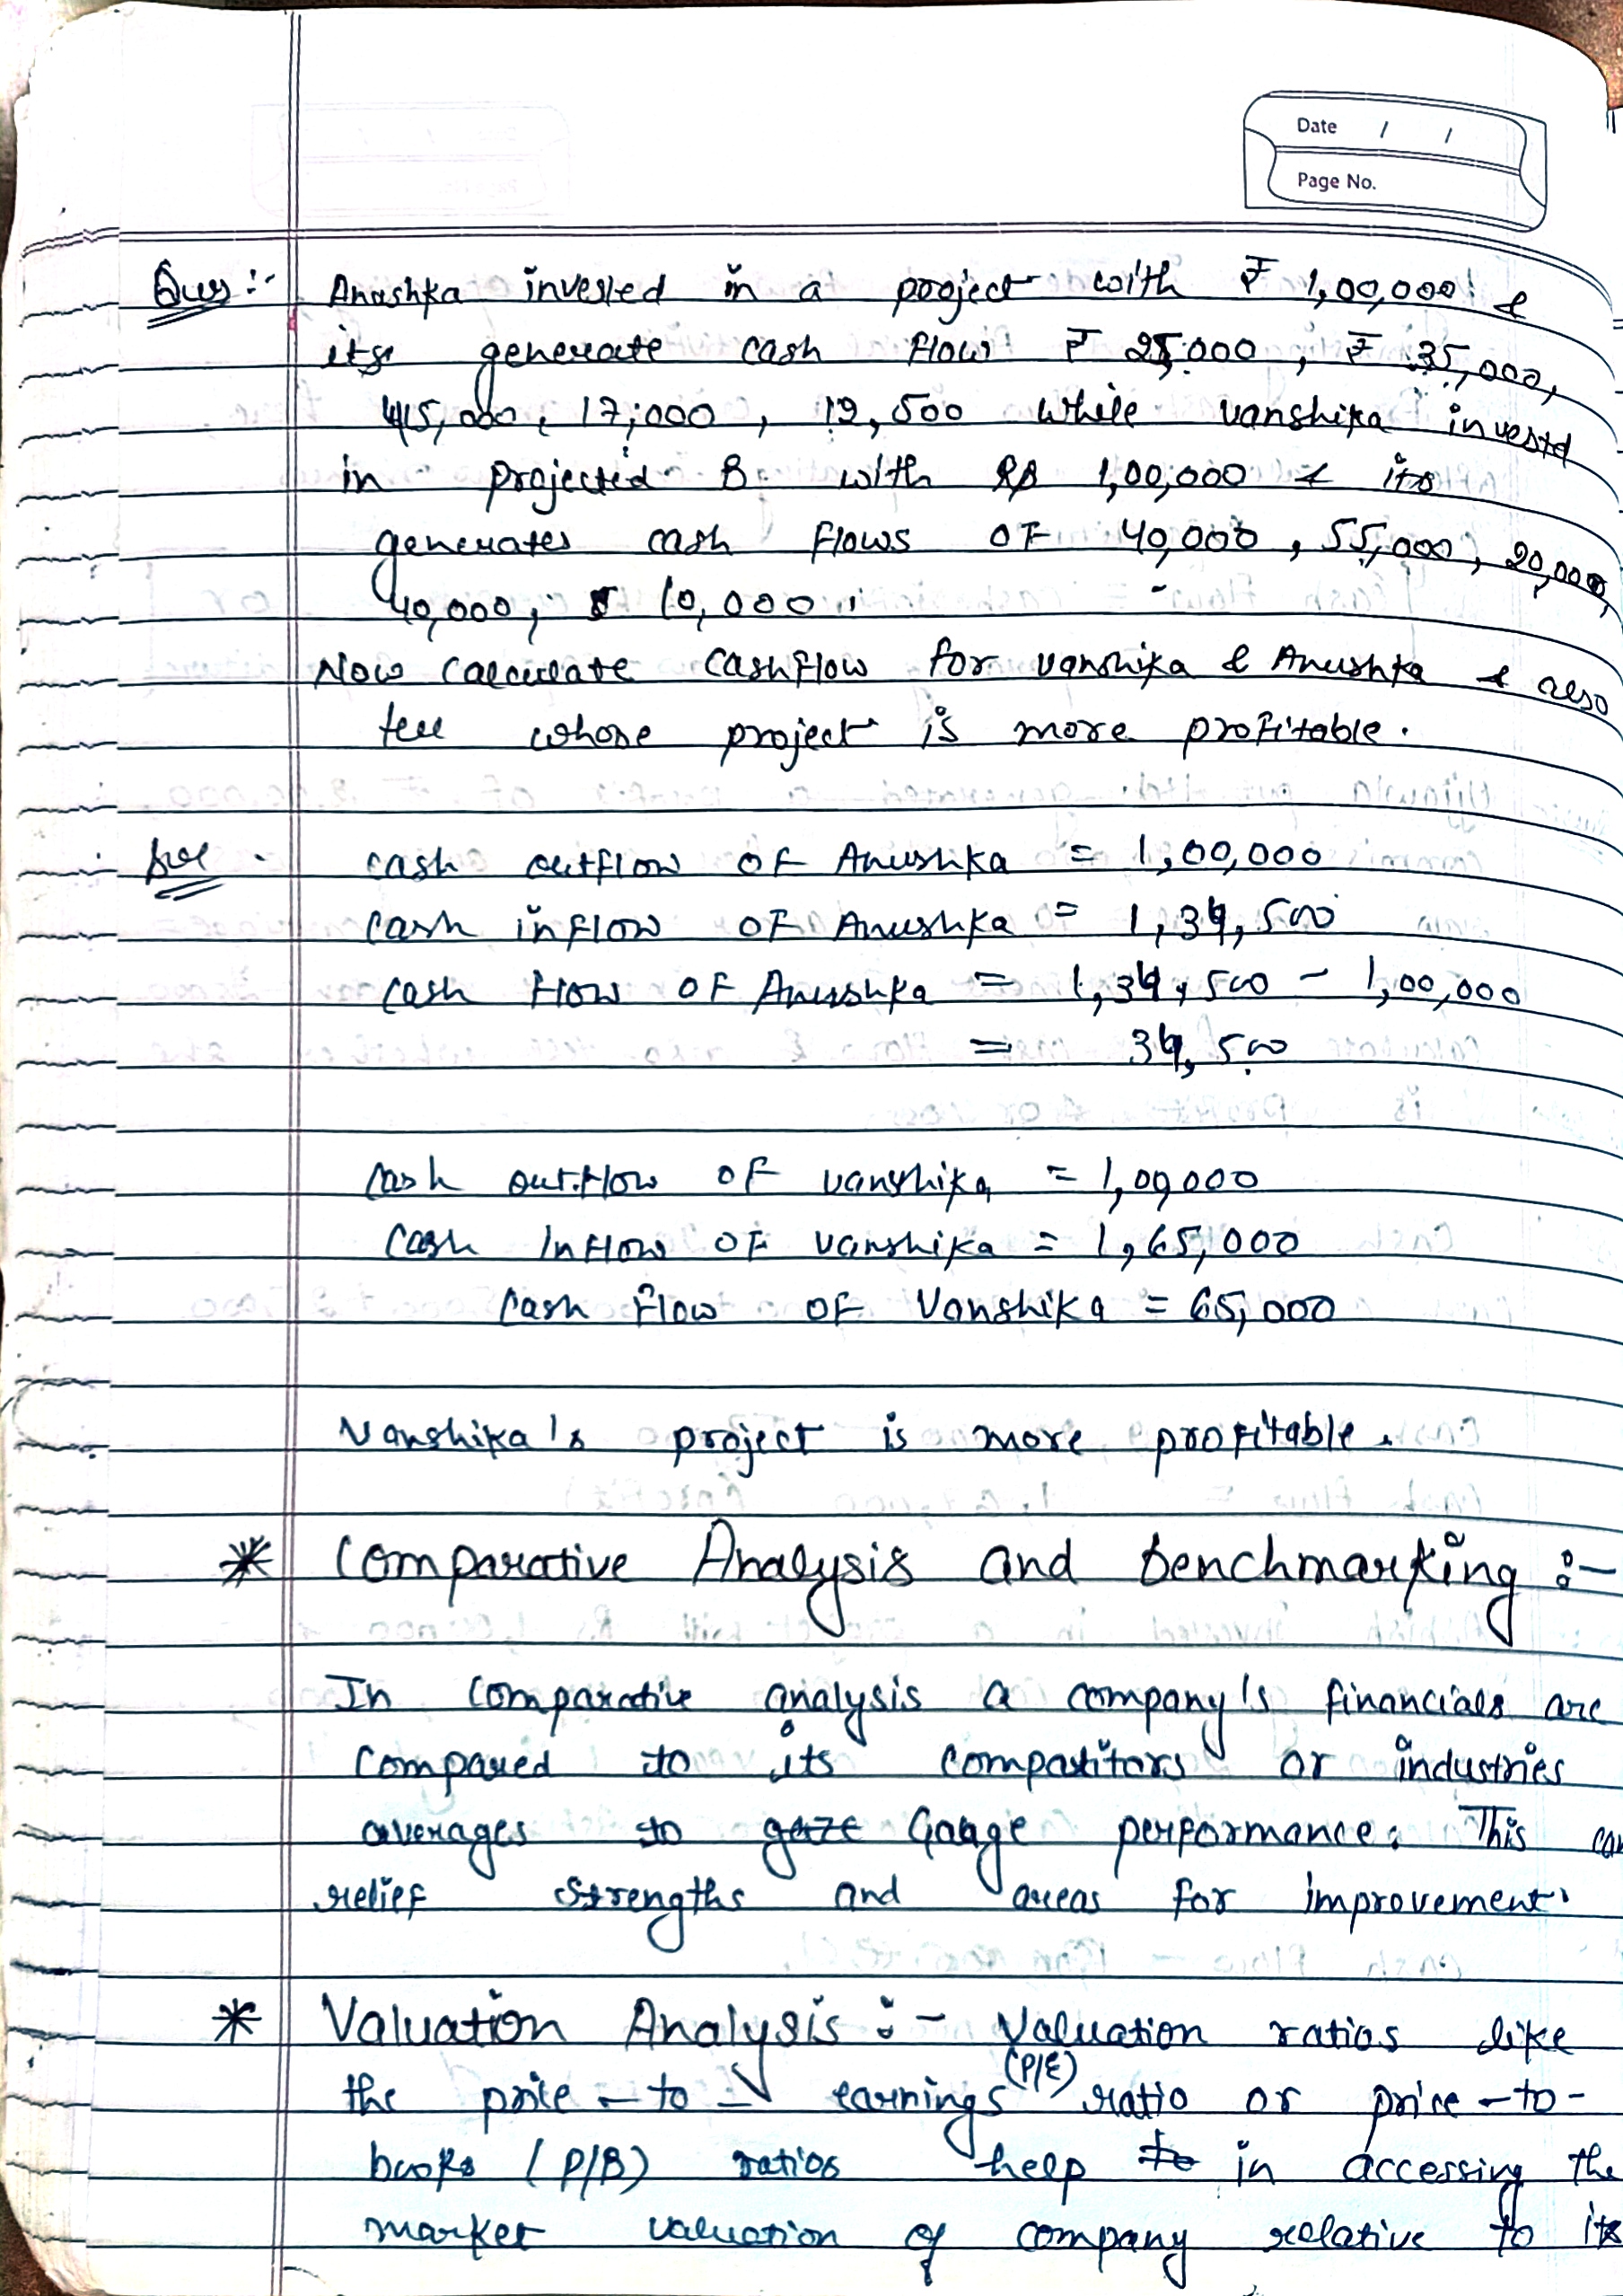 Date / /
Page No.
Ques :- Anushka invested in a project with ₹ 1,00,000 &
its generate cash flow ₹ 25,000 , ₹ 35,000,
45,000, 17,000 , 12,500 while vanshika invested
in projected B with RS 1,00,000 & its
generates cash flows OF 40,000 , 55,000, 20,000,
40,000, 10,000.
Now calculate cashflow for vanshika & Anushka & also
tell whose project is more profitable.
Sol. cash outflow OF Anushka = 1,00,000
cash inflow OF Anushka = 1,34,500
cash flow OF Anushka = 1,34,500 - 1,00,000
= 34,500
cash outflow OF vanshika = 1,00,000
cash Inflow OF vanshika = 1,65,000
cash flow OF Vanshika = 65,000
Vanshika's project is more profitable.
* Comparative Analysis and benchmarking :-
In comparative analysis a company's financials are
compared to its compatitors or industries
averages to gaze Gauge performance. This can
relief strengths and areas for improvement.
* Valuation Analysis :- Valuation ratios like
the price - to - earnings (P/E) ratio or price - to -
books (P/B) ratios help to in accessing the
market valuation of company relative to its